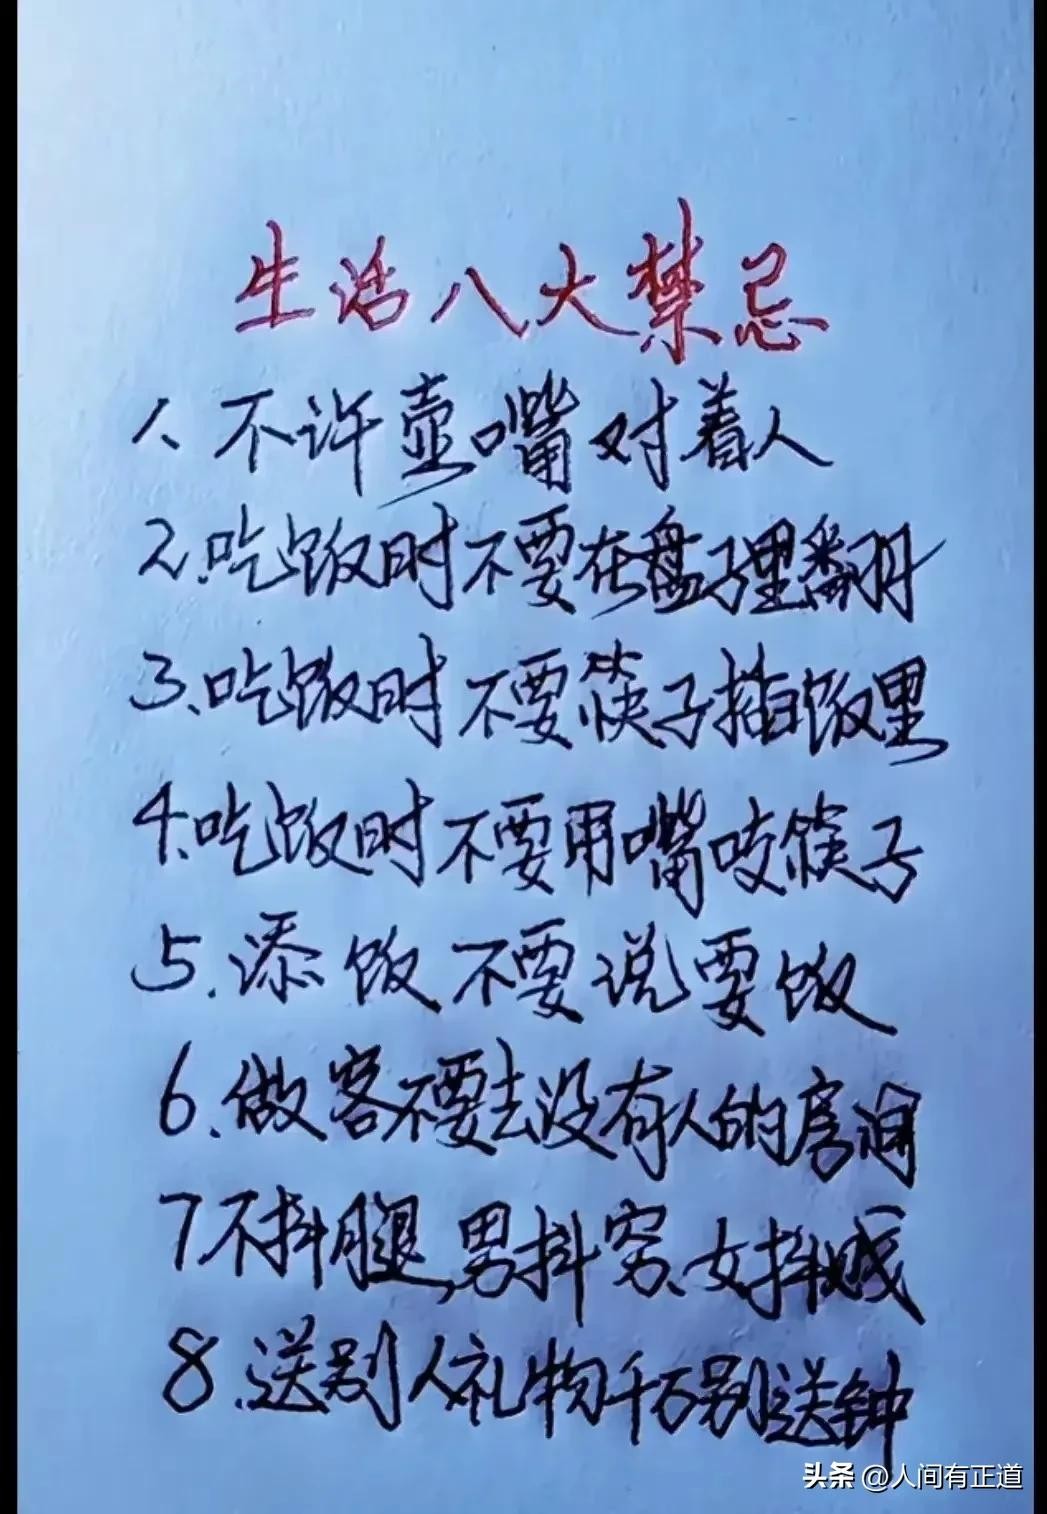 生活八大禁忌
1、不许壶嘴对着人
2、吃饭时不要在盘子里翻
3、吃饭时不要筷子插饭里
4、吃饭时不要用嘴咬筷子
5.添饭不要说要饭
6.做客不要去没有人的房间
7不抖腿,男抖穷、女抖贱
8.送别人礼物千万别送钟
头条 @人间有正道